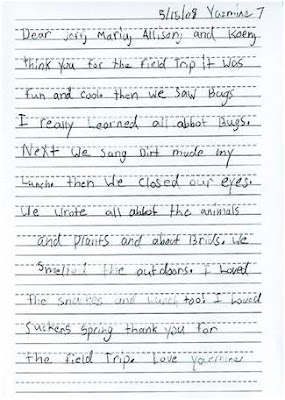 5/15/08 Yazmine 7
Dear Jerry Marley, Allison, and Kaeng
think you for the field Trip it was
fun and cool. then we saw Bugs
I really Learned all abbot Bugs.
Next we sang Dirt made my
Lunch. then we closed our eyes.
We wrote all abbot the animals
and plants and about Brids. We
Smelled the outdoors. I Loved
the snakes and Lunch too! I Loved
Suckers Spring thank you for
the field Trip. Love Yazmine